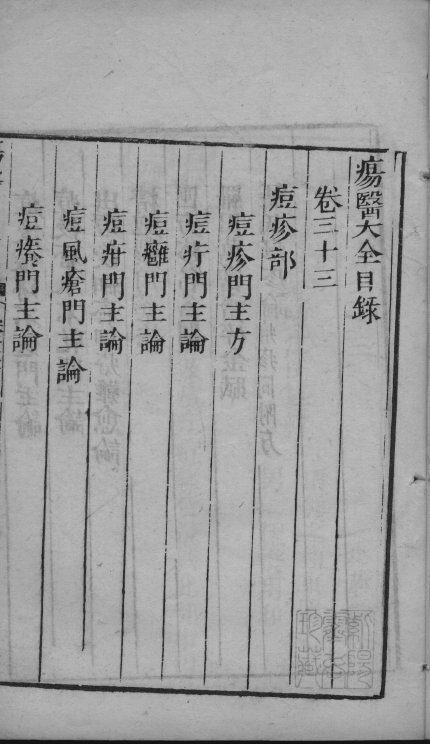 瘍醫大全目錄
卷三十三
痘疹部
痘疹門主方
痘疔門主論
痘癰門主論
痘疳門主論
痘風瘡門主論
痘癢門主論